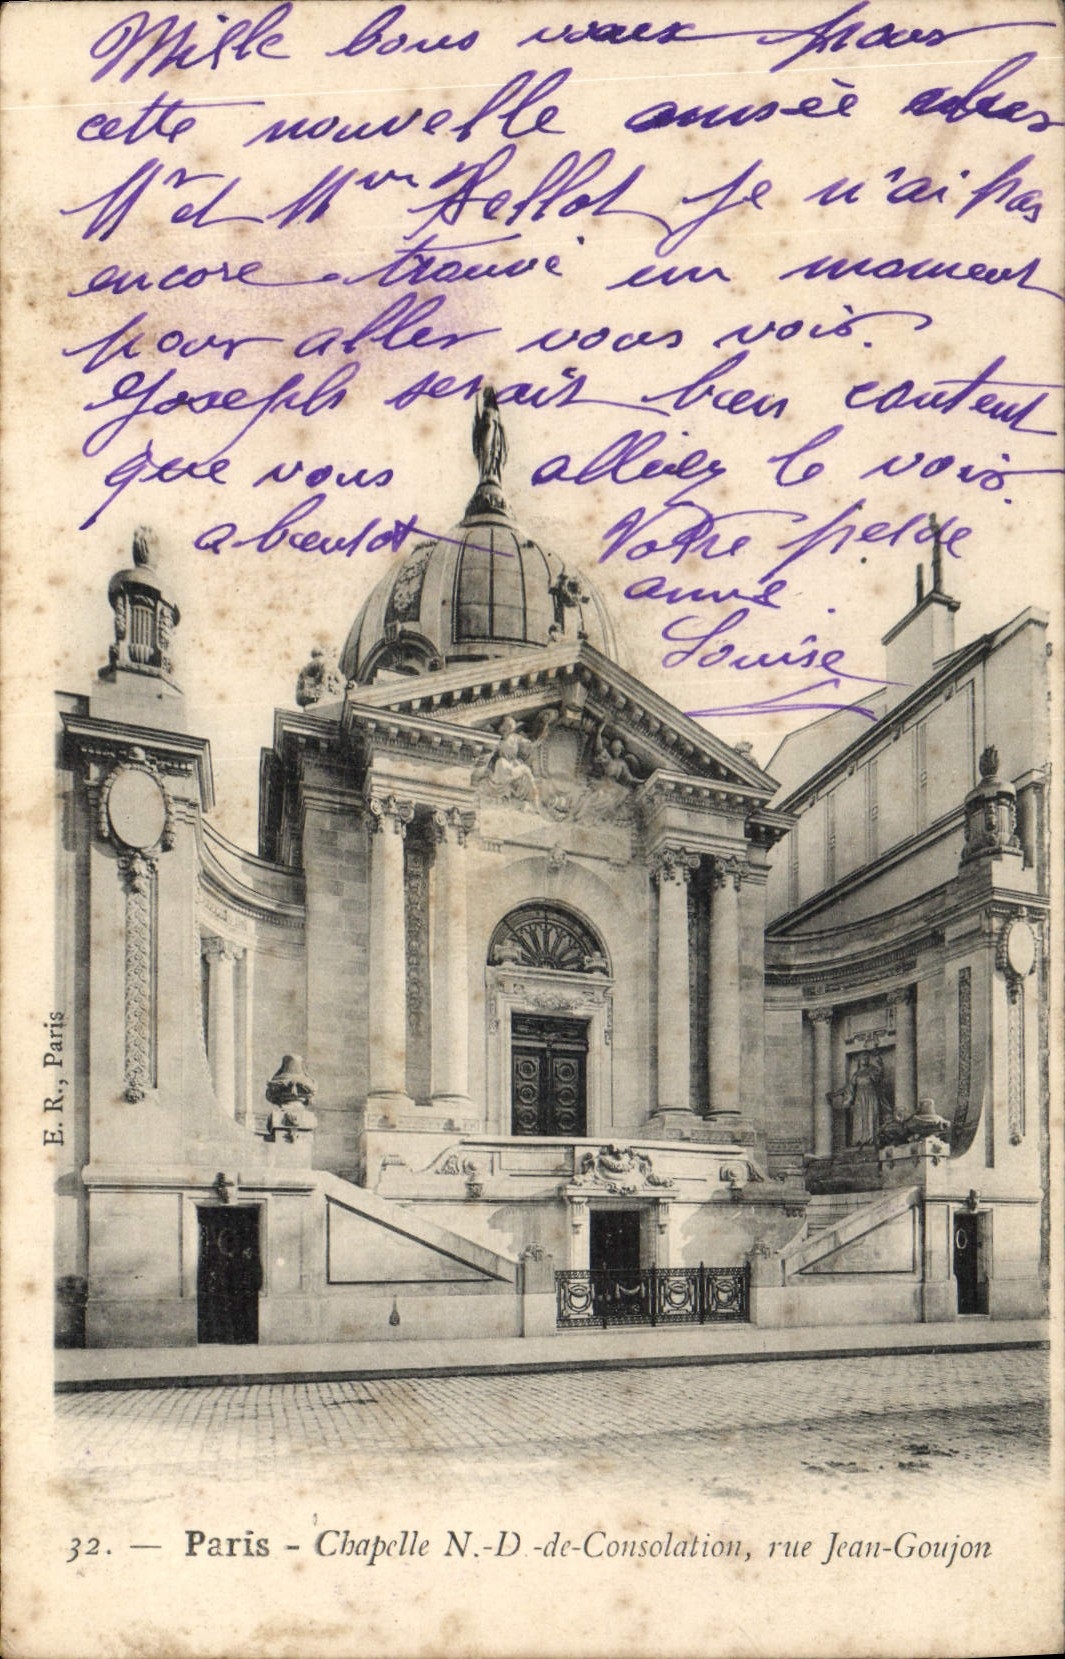 Mille bons vœux pour
cette nouvelle année chers
Mr et Mme Hellot Je n'ai pas
encore trouvé un moment
pour aller vous voir.
Joseph serait bien content
que vous alliez le voir.
a bientot Votre petite
amie.
Louise
E. R., Paris
32. — Paris - Chapelle N.-D.-de-Consolation, rue Jean-Goujon